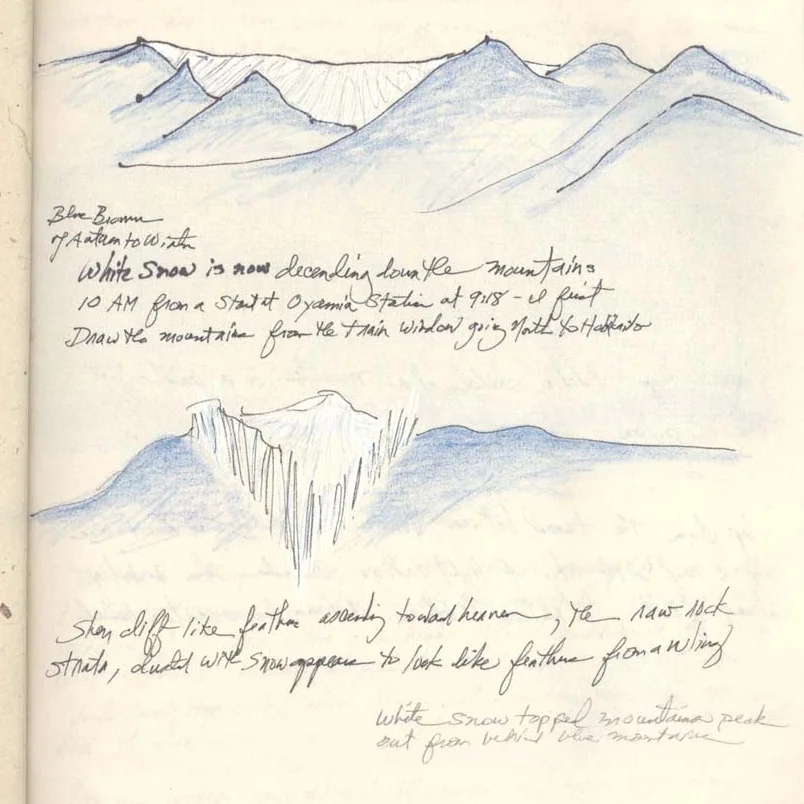 Blue Brown
of Autum to Wintr
White Snow is now decending down the mountains
10 AM from a Start at Oyamia Station at 9:18 - I first
Draw the mountains from the train window going North to
Sheer cliff like feathers ascending toward heaven, the raw rock
strata, dusted with snow appears to look like feathers from a wing
White snow topped mountains peak
out from behind blue mountains